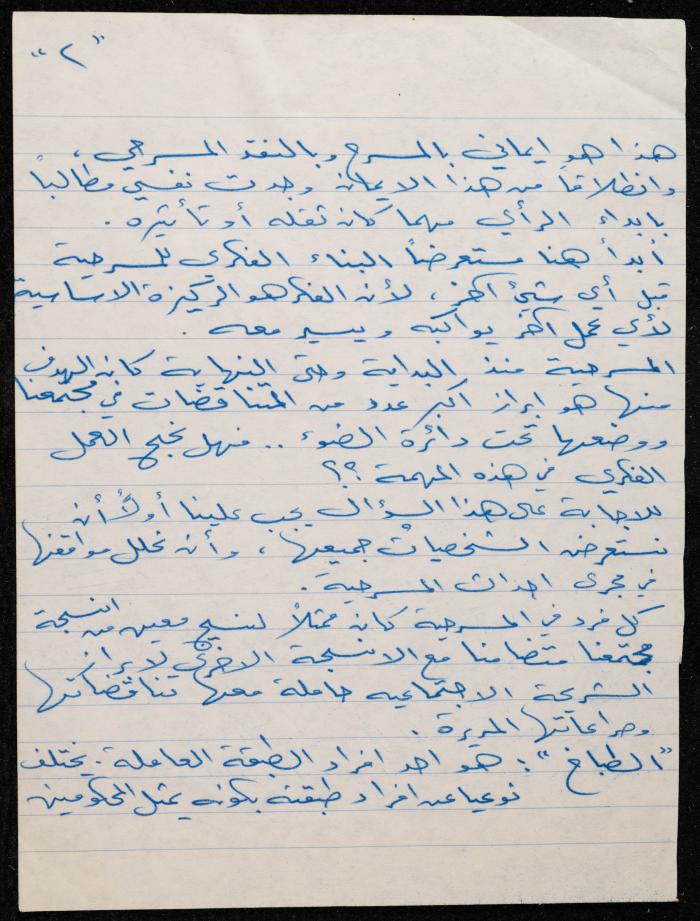 "٢"
هذا هو ايماني بالمسرح وبالنقد المسرحي،
وانطلاقاً من هذا الايمان وجدت نفسي مطالباً
بابداء الرأي مهما كان ثقله أو تأثيره.
أبدأ هنا مستعرضاً البناء الفكري للمسرحية
قبل أي شيئ آخر، لأن الفكر هو الركيزة الاساسية
لأي عمل آخر يواكبه ويسير معه.
المسرحية منذ البداية وحتى النهاية كان الهدف
منها هو إبراز اكبر عدد من المتناقضات في مجتمعنا
ووضعها تحت دائرة الضوء.. فهل نجح العمل
الفكري في هذه المهمة؟؟
للاجابة على هذا السؤال يجب علينا أولاً أن
نستعرض الشخصيات جميعها، وأن نحلل مواقفها
في مجرى احداث المسرحية.
كل فرد في المسرحية كان ممثلاً لنسيج معين من انسجة
مجتمعنا متضامنا مع الانسجة الاخرى لابراز
الشريحة الاجتماعيه حاملة معها تناقضاتها
وصراعاتها المريرة.
"الطباخ": هو احد افراد الطبقة العاملة. يختلف
نوعيا عن افراد طبقته بكونه يمثل المحكومين